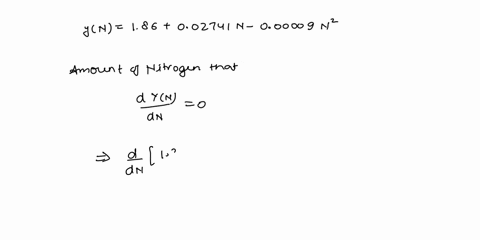 y(N) = 1.86 + 0.02741 N - 0.00009 N²
Amount of Nitrogen that
d Y(N)/dN = 0
⇒ d/dN [ 1.